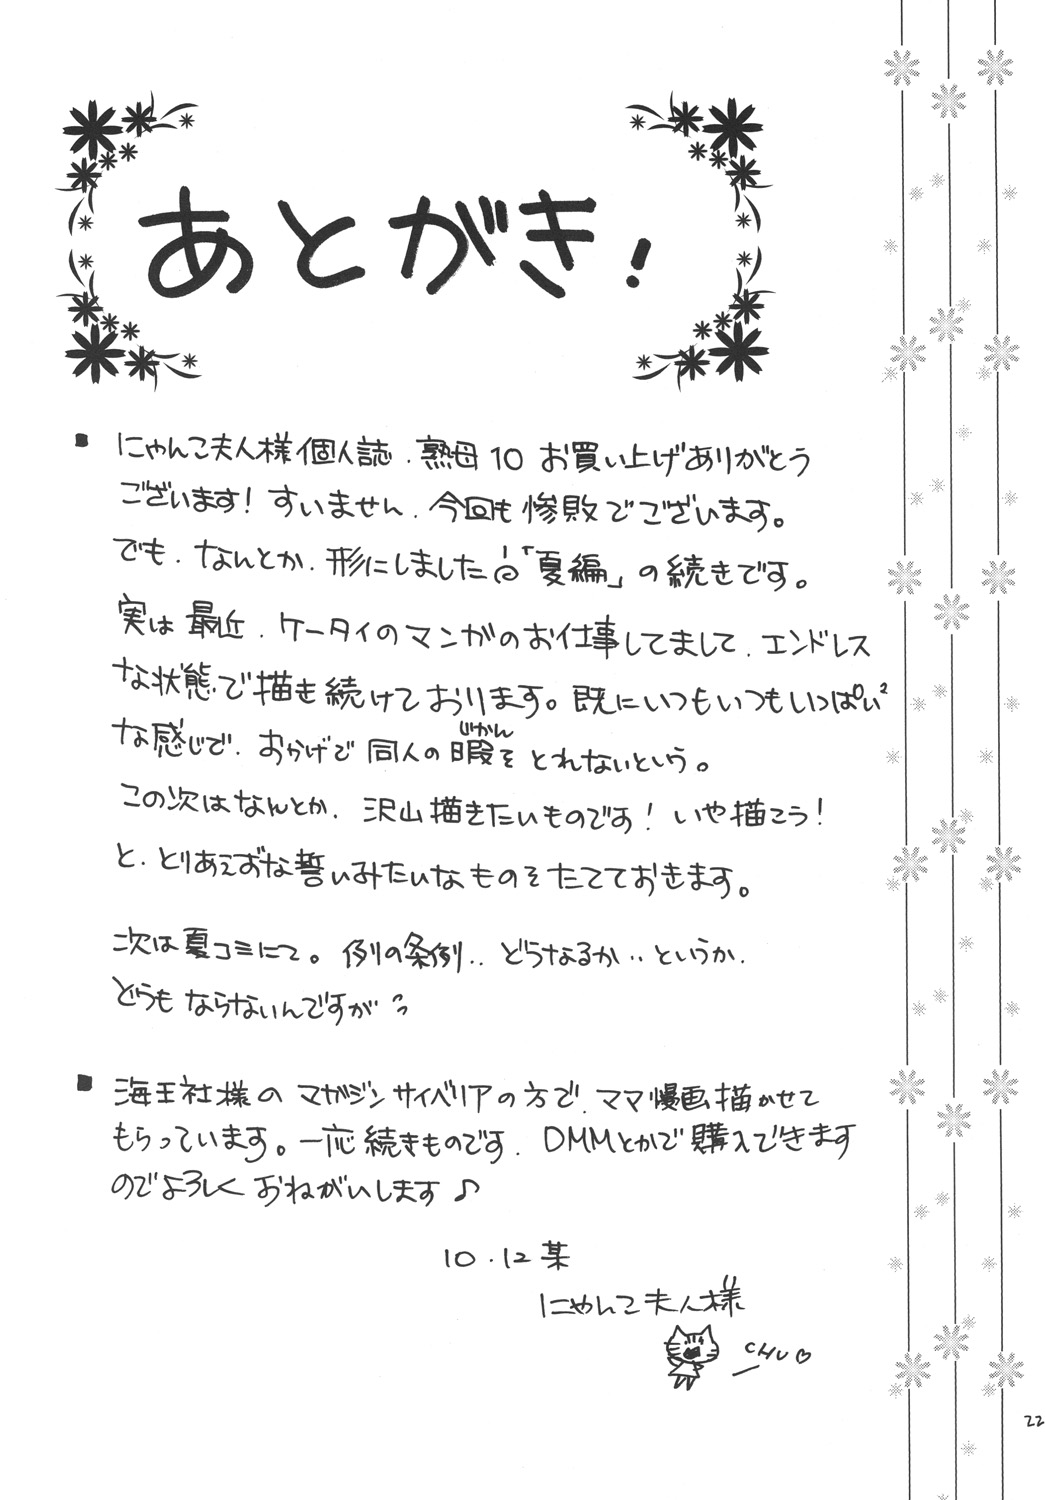 あとがき!
■ にゃんこ夫人様個人誌.熟母10 お買い上げありがとう
ございます! すいません.今回も惨敗でございます。
でも.なんとか.形にしました 「夏編」の続きです。
実は最近.ケータイのマンガのお仕事してまして.エンドレス
な状態で描き続けております。既にいつもいつもいっぱい²
な感じで.おかげで同人の暇をとれないという。
じかん
この次はなんとか.沢山描きたいものです! いや描こう!
と.とりあえずな誓いみたいなものをたてておきます。
次は夏コミにて。例の条例..どうなるか..というか.
どうもならないんですが
■ 海王社様のマガジンサイベリアの方で.ママ漫画描かせて
もらっています。一応続きものです.DMMとかで購入できます
のでよろしくおねがいします♪
10.12某
にゃんこ夫人様
CHU♡
22